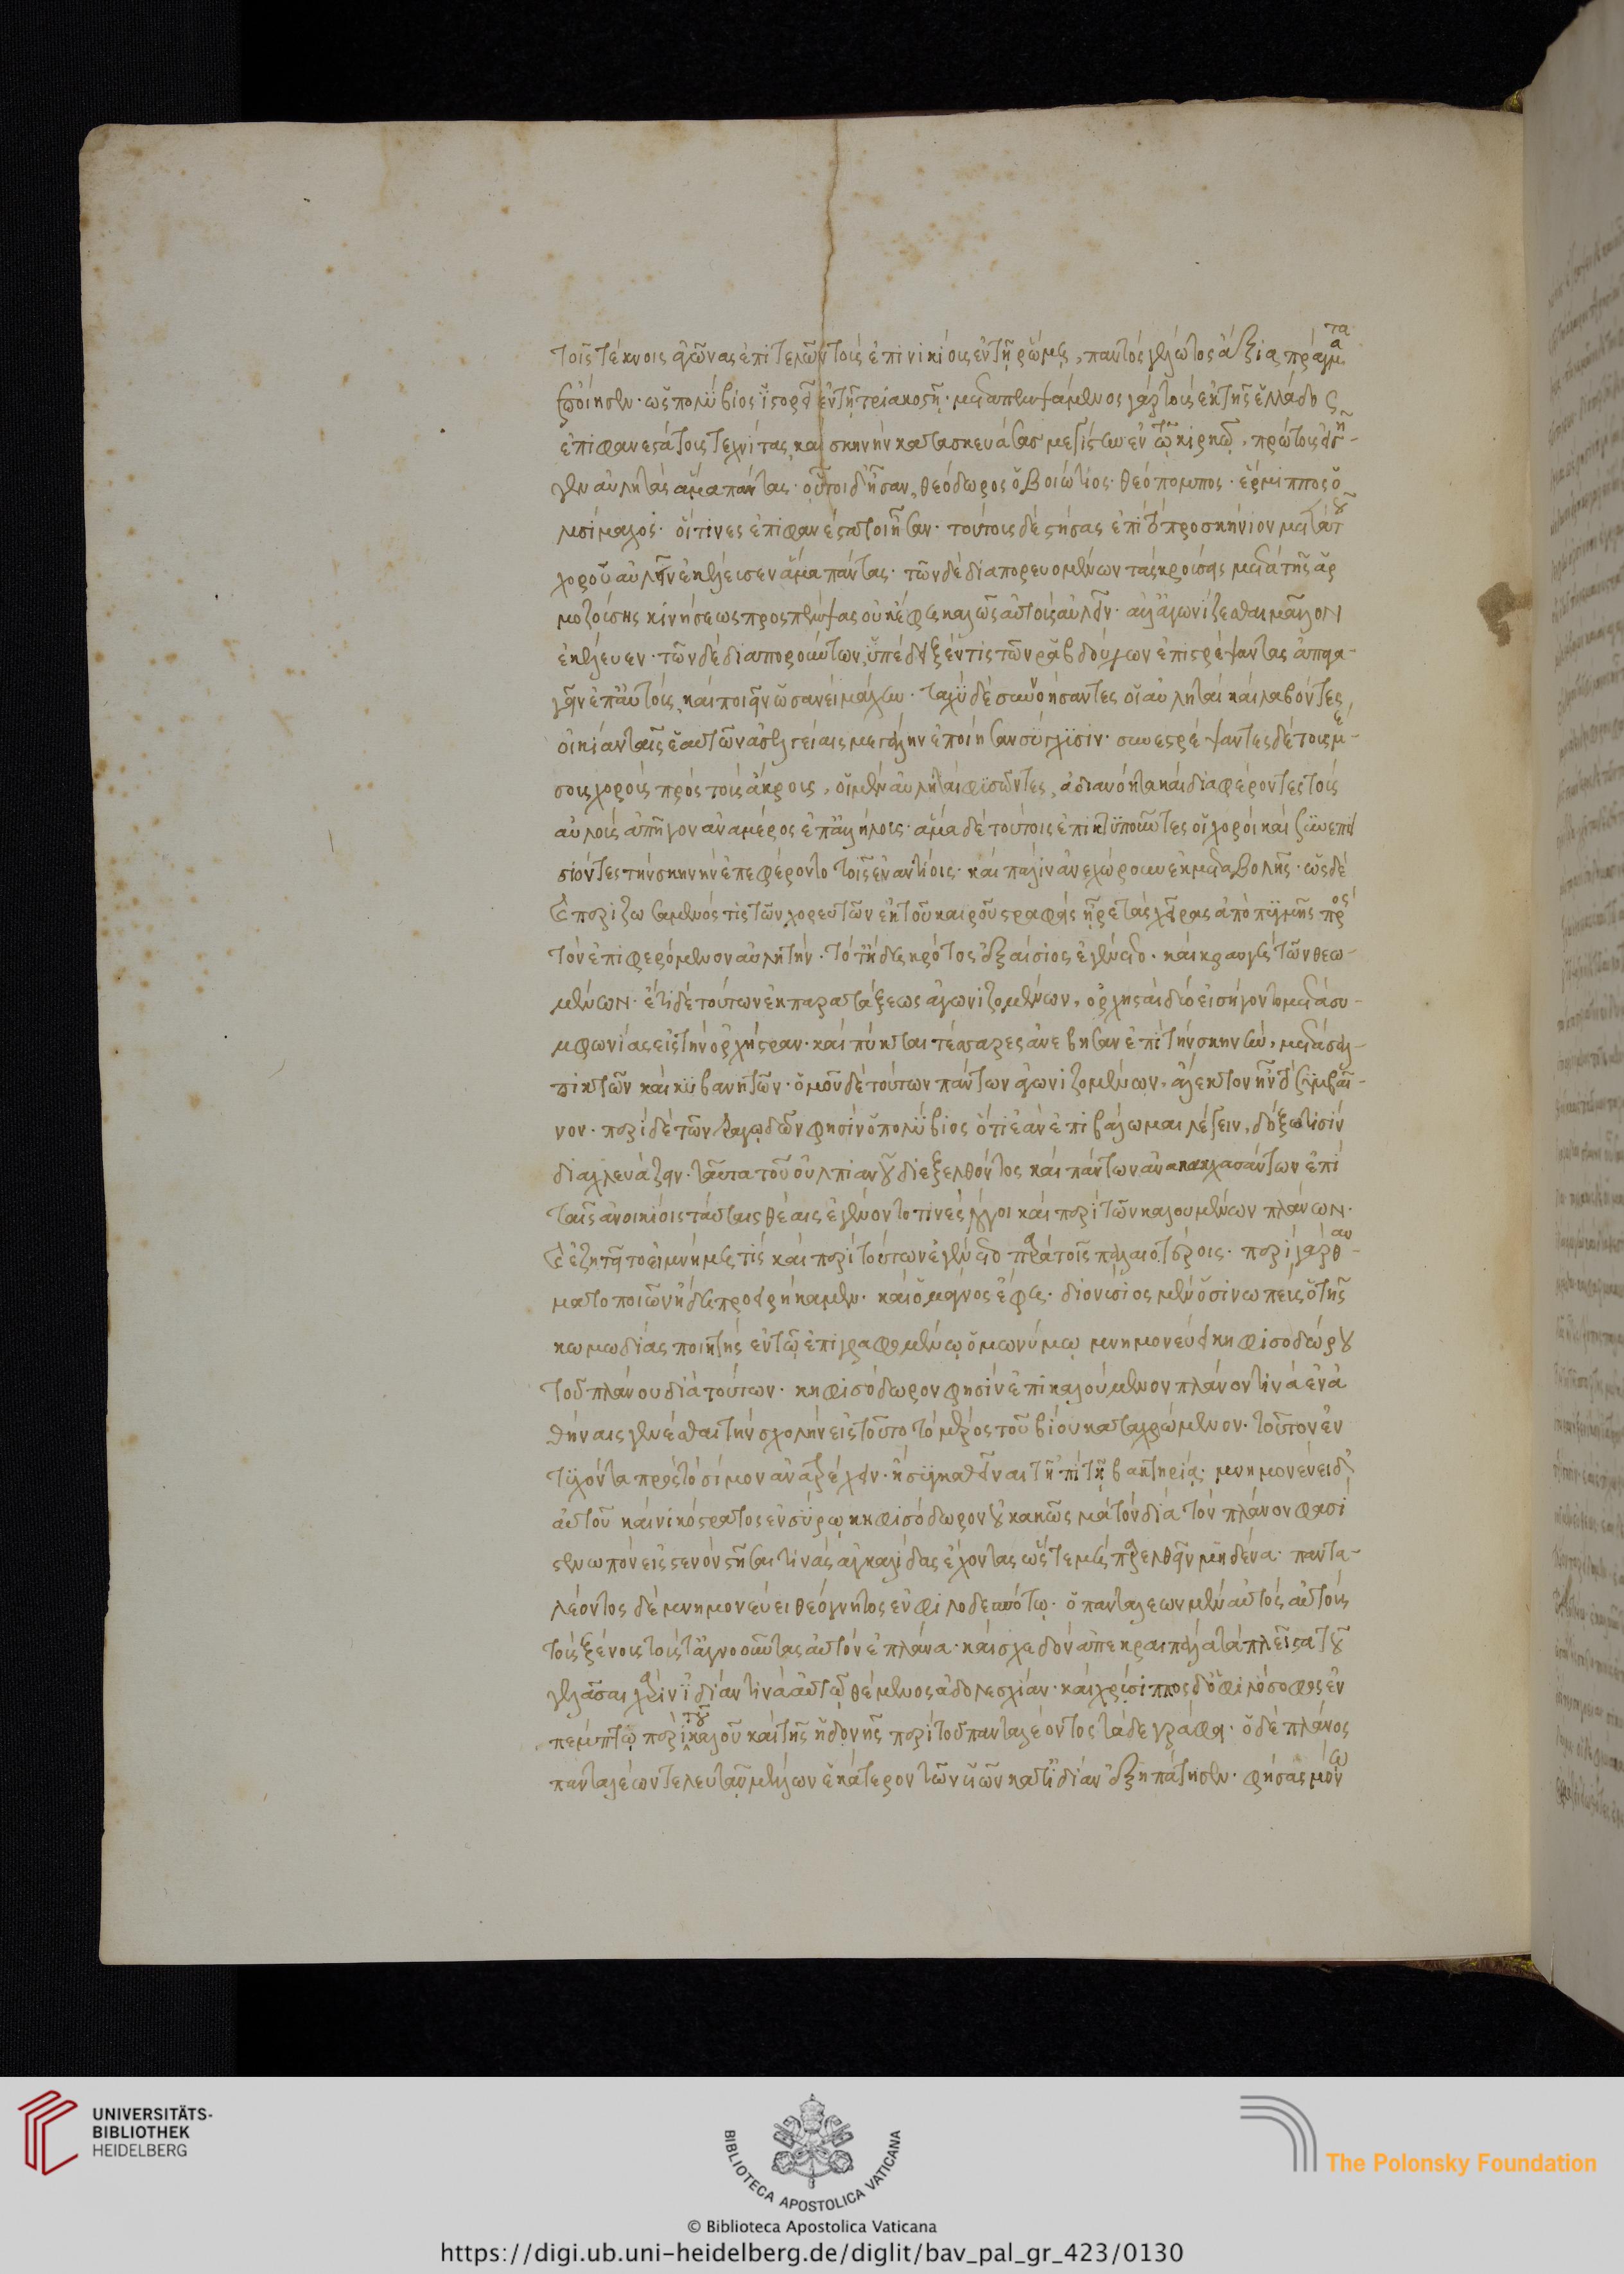 τοῖς τέκνοις ἀγῶνας ἐπιτελῶν τοῖς ἐπινικίοις ἐν τῇ ῥώμῃ, παντὸς γέλωτος ἄξια πράγματα
ἐποίησεν· ὡς πολύβιος ἱστορεῖ ἐν τῇ τριακοστῇ· μεταπεμψάμενος γὰρ τοὺς ἐκ τῆς ἑλλάδος
ἐπιφανεστάτους τεχνίτας, καὶ σκηνὴν κατασκευάσας μεγίστην ἐν τῷ κίρκῳ, πρώτους εἰσῆ-
γεν αὐλητὰς ἅμα πάντας· οὗτοι δ' ἦσαν, θεόδωρος ὁ βοιώτιος· θεόπομπος· ἕρμιππος ὁ
λυσίμαχος· οἵτινες ἐπιφανέστατοι ἦσαν· τούτους δὲ στήσας ἐπὶ τὸ προσκήνιον μετὰ τοῦ
χοροῦ αὐλεῖν ἐκέλευσεν ἅμα πάντας· τῶν δὲ διαπορευομένων τὰς κρούσεις μετὰ τῆς ἁρ
μοζούσης κινήσεως προσπέμψας οὐκ ἔφη καλῶς αὐτοὺς αὐλεῖν· ἀλλ' ἀγωνίζεσθαι μᾶλλον
ἐκέλευεν· τῶν δὲ διαπορούντων, ὑπέδειξέν τις τῶν ῥαβδούχων ἐπιστρέψαντας ἀπαγα-
γεῖν ἐπ' αὐτοὺς, καὶ ποιεῖν ὡσανεὶ μάχην· ταχὺ δὲ συννοήσαντες οἱ αὐληταὶ καὶ λαβόντες
οἰκίαν ταῖς ἑαυτῶν ἀσελγείαις μεγάλην ἐποίησαν σύγχυσιν· συνεστρέψαντες δὲ τοὺς μέ-
σους χοροὺς πρὸς τοὺς ἄκρους, οἱ μὲν αὐληταὶ φυσῶντες, ἀδιανόητα καὶ διαφέροντες τοὺς
αὐλοὺς ἀπῆγον ἀνὰ μέρος ἐπ' ἀλλήλους· ἅμα δὲ τούτοις ἐπικτυποῦντες οἱ χοροὶ καὶ συνεπει
σιόντες τὴν σκηνὴν ἐπεφέροντο τοῖς ἐναντίοις· καὶ πάλιν ἀνεχώρουν ἐκ μεταβολῆς· ὡς δὲ
καὶ περιζωσάμενός τις τῶν χορευτῶν ἐκ τοῦ καιροῦ στραφεὶς ἦρε τὰς χεῖρας ἀπὸ πυγμῆς πρὸς
τὸν ἐπιφερόμενον αὐλητήν· τότ' ἤδη κρότος ἐξαίσιος ἐγένετο· καὶ κραυγὴ τῶν θεω-
μένων· ἔτι δὲ τούτων ἐκ παρατάξεως ἀγωνιζομένων, ὀρχησταὶ δύο εἰσήγοντο μετὰ συ-
μφωνίας εἰς τὴν ὀρχήστραν· καὶ πύκται τέσσαρες ἀνέβησαν ἐπὶ τὴν σκηνήν, μετὰ σαλ-
πικτῶν καὶ κυβανητῶν· ὁμοῦ δὲ τούτων πάντων ἀγωνιζομένων, ἄλεκτον ἦν τὸ συμβαῖ-
νον· περὶ δὲ τῶν τραγῳδῶν φησὶν ὁ πολύβιος ὅτι ἐὰν ἐπιβάλωμαι λέγειν, δόξω τισὶν
διαχλευάζειν· ταῦτα τοῦ οὐλπιανοῦ διεξελθόντος καὶ πάντων ἀνακακχασάντων ἐπὶ
ταῖς ἀνοικίοις ταύταις θέαις ἐγένοντό τινες λόγοι καὶ περὶ τῶν καλουμένων πλάνων·
καὶ ἐζητεῖτο εἰ μνήμη τις καὶ περὶ τούτων ἐγένετο παρὰ τοῖς παλαιοτέροις· περὶ γὰρ θαυ-
ματοποιῶν ἤδη προειρήκαμεν· καὶ ὁ μάγνος ἔφη· διονύσιος μὲν ὁ σινωπεὺς ὁ τῆς
κωμωδίας ποιητὴς ἐν τῷ ἐπιγραφομένῳ ὁμωνύμῳ μνημονεύει κηφισοδώρου
τοῦ πλάνου διὰ τούτων· κηφισόδωρον φησὶν ἐπικαλούμενον πλάνον τινὰ ἐν ἀ
θήναις γενέσθαι τὴν σχολὴν εἰς τοῦτο τὸ μέρος τοῦ βίου καταχρώμενον· τοῦτον ἐν
τυχόντα πρὸς τὸ σιμὸν ἀνατρέχειν· ἢ συγκαθεῖναι τῇ 'πὶ τῇ βακτηρίᾳ· μνημονένει δ'
αὐτοῦ καὶ νικόστρατος ἐν σύρῳ κηφισόδωρον οὐ κακῶς μὰ τὸν δία τὸν πλάνον φασὶ
στενωπὸν εἰς στενὸν στῆσαί τινας ἀγκαλίδας ἔχοντας ὥστε μὴ παρελθεῖν μηδένα· παντα-
λέοντος δὲ μνημονεύει θεόγνητος ἐν φιλοδεσπότῳ· ὁ πανταλέων μὲν αὐτὸς αὐτοὺς
τοὺς ξένους τοὺς τ' ἀγνοοῦντας αὐτὸν ἐπλάνα· καὶ σχεδὸν ἀπεκραιπάλα τὰ πλεῖστα τοῦ
γελάσαι χάριν ἰδίαν τινὰ αὐτῷ θέμενος ἀδολεσχίαν· καὶ χρύσιππος δ' ὁ φιλόσοφος ἐν
πέμπτῳ περὶ τοῦ καλοῦ καὶ τῆς ἡδονῆς περὶ τοῦ πανταλέοντος τάδε γράφει· ὁ δὲ πλάνος
πανταλέων τελευτᾶν μέλλων ἑκάτερον τῶν υἱῶν κατ' ἰδίαν ἐξηπάτησεν· φήσας μόνῳ
UNIVERSITÄTS-
BIBLIOTHEK
HEIDELBERG
BIBLIOTECA APOSTOLICA VATICANA
The Polonsky Foundation
© Biblioteca Apostolica Vaticana
https://digi.ub.uni-heidelberg.de/diglit/bav_pal_gr_423/0130